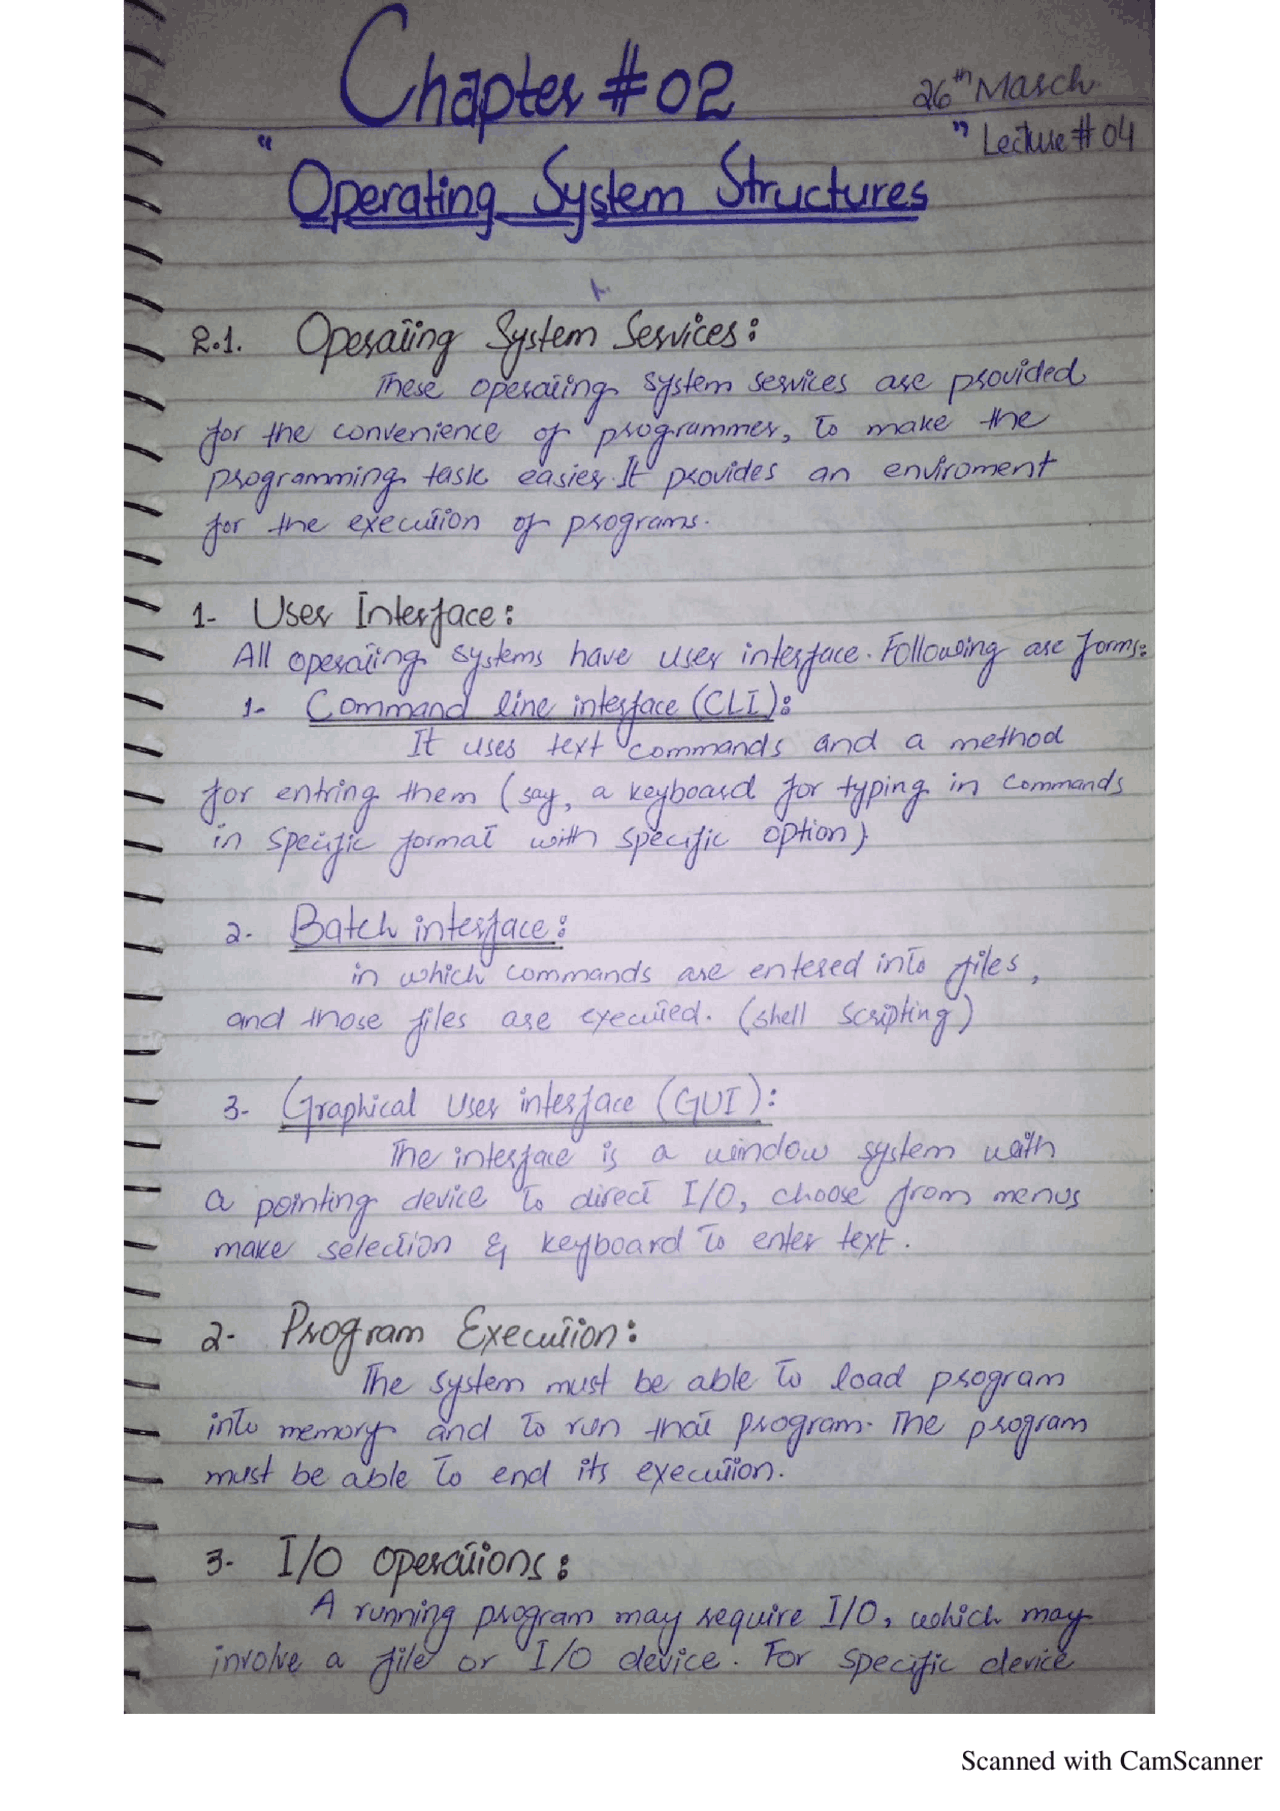 Chapter #02
26th March
" Operating System Structures "
Lecture # 04
2.1. Operating System Services:
These operating system services are provided
for the convenience of programmer, to make the
programming task easier. It provides an enviroment
for the execution of programs.
1- User Interface:
All operating systems have user interface. Following are forms:
1- Command line interface (CLI):
It uses text commands and a method
for entring them (say, a keyboard for typing in commands
in specific format with specific option)
2- Batch interface:
in which commands are entered into files,
and those files are executed. (shell scripting)
3- Graphical user interface (GUI):
The interface is a window system with
a pointing device to direct I/O, choose from menus
make selection & keyboard to enter text.
2- Program Execution:
The system must be able to load program
into memory and to run that program. The program
must be able to end its execution.
3- I/O operations:
A running program may require I/O, which may
involve a file or I/O device. For specific device
Scanned with CamScanner